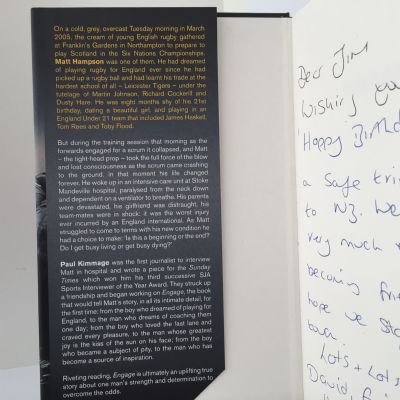 On a cold, grey, overcast Tuesday morning in March
2005, the cream of young English rugby gathered
at Franklin's Gardens in Northampton to prepare
to play Scotland in the Six Nations Championships.
Matt Hampson was one of them. He had dreamed
of playing rugby for England ever since he had
picked up a rugby ball and had learnt his trade at the
hardest school of all – Leicester Tigers – under
the tutelage of Martin Johnson, Richard Cockerill and
Dusty Hare. He was eight months shy of his 21st
birthday, dating a beautiful girl, and playing in an
England Under 21 team that included James Haskell,
Tom Rees and Toby Flood.
But during the training session that morning as the
forwards engaged for a scrum it collapsed, and Matt
– the tight-head prop – took the full force of the blow
and lost consciousness as the scrum came crashing
to the ground. In that moment his life changed
forever. He woke up in an intensive care unit at Stoke
Mandeville hospital, paralysed from the neck down
and dependent on a ventilator to breathe. His parents
were devastated, his girlfriend was distraught, his
team-mates were in shock; it was the worst injury
ever incurred by an England international. As Matt
struggled to come to terms with his new condition he
had a choice to make: 'Is this a beginning or the end?
Do I get busy living or get busy dying?'
Paul Kimmage was the first journalist to interview
Matt in hospital and wrote a piece for the Sunday
Times which won him his third successive SJA
Sports Interviewer of the Year Award. They struck up
a friendship and began working on Engage, the book
that would tell Matt's story, in all its intimate detail, for
the first time: from the boy who dreamed of playing for
England, to the man who dreams of coaching them
one day; from the boy who loved the fast lane and
craved every pleasure, to the man whose greatest
joy is the kiss of the sun on his face; from the boy
who became a subject of pity, to the man who has
become a source of inspiration.
Riveting reading, Engage is ultimately an uplifting true
story about one man's strength and determination to
overcome the odds.
Dear Jim
Wishing you
Happy Birthd
a safe tri
to NZ. We
very much
becoming fri
hope we sta
Lots + Lots
David